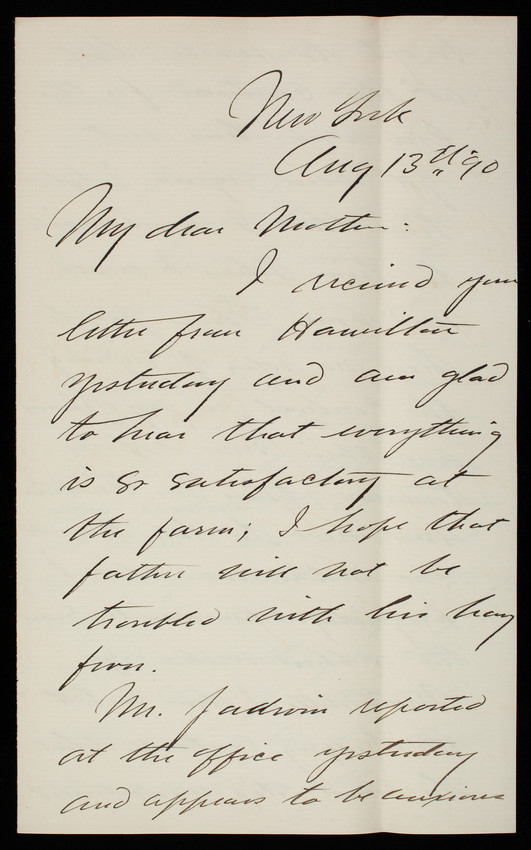 New York
Aug 13th "90
My dear Mother:
I received your
letter from Hamilton
yesterday and am glad
to hear that everything
is so satisfactory at
the farm; I hope that
father will not be
troubled with his hay
fever.
Mr. Jadwin reported
at the office yesterday
and appears to be anxious